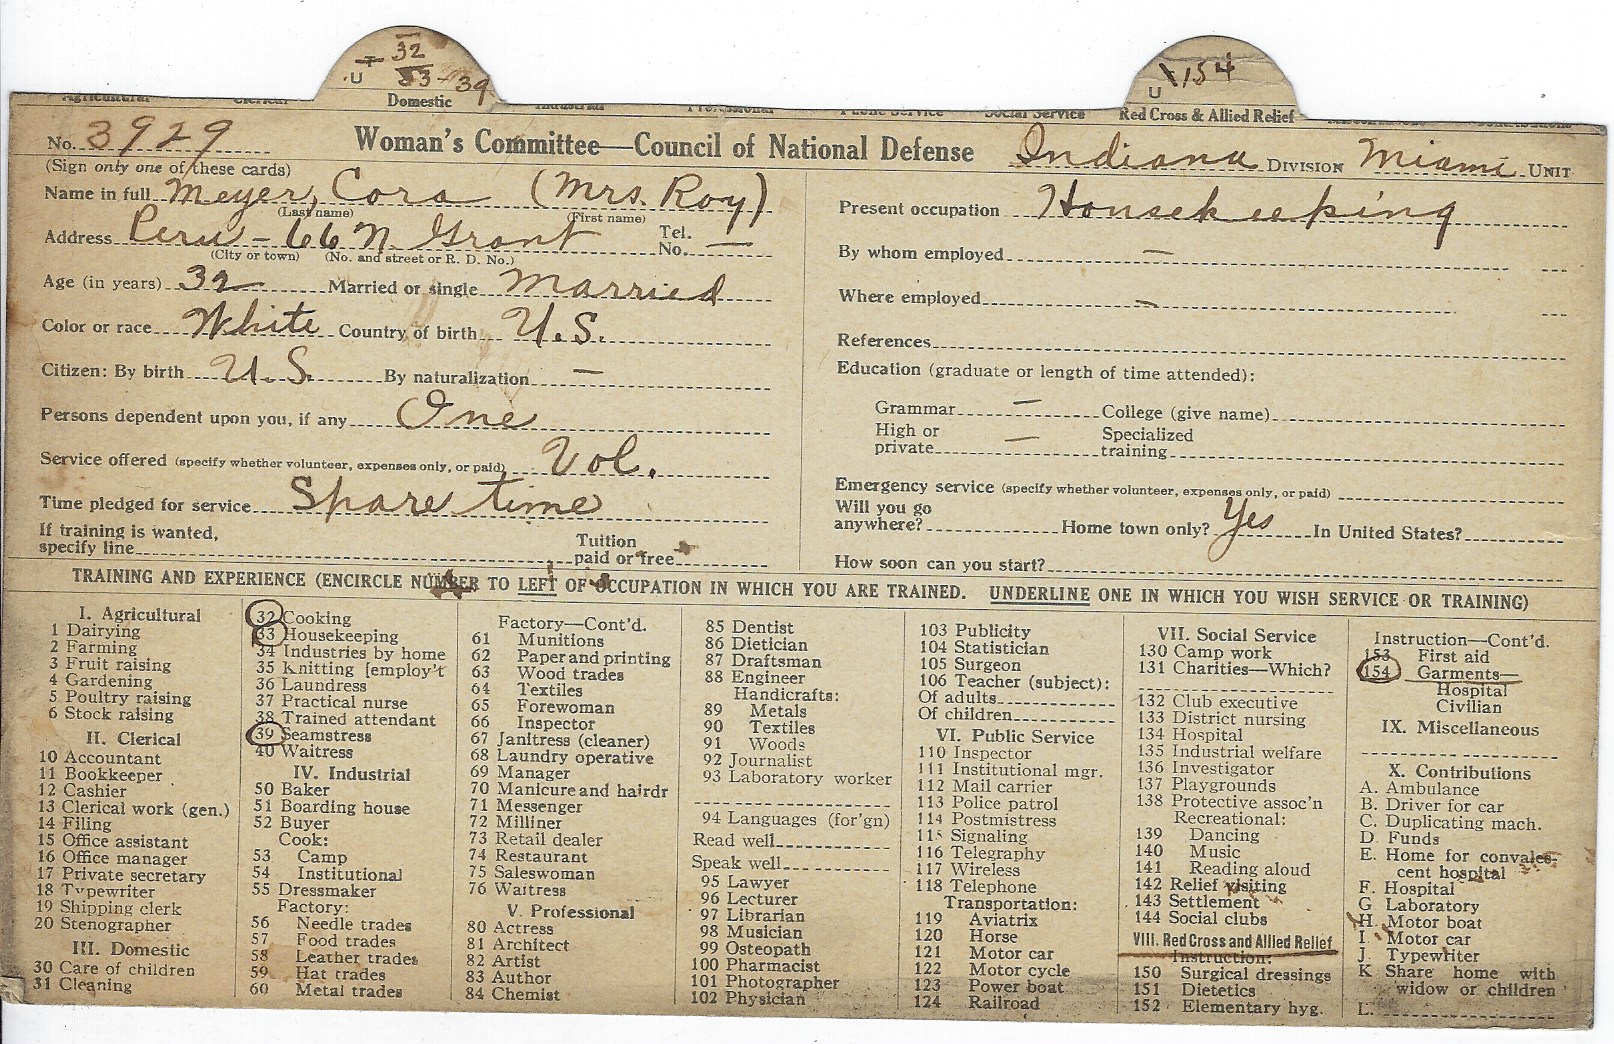 T 32
U 33-39
Domestic
154
U
Red Cross & Allied Relief
Agricultural Clerical Industrial Professional Public Service Social Service
No. 3929 Woman's Committee—Council of National Defense Indiana DIVISION Miami UNIT
(Sign only one of these cards)
Name in full Meyer, Cora (Mrs. Roy)
(Last name) (First name)
Address Peru - 66 N. Grant Tel. No. —
(City or town) (No. and street or R. D. No.)
Age (in years) 32 Married or single Married
Color or race White Country of birth U.S.
Citizen: By birth U.S. By naturalization —
Persons dependent upon you, if any One
Service offered (specify whether volunteer, expenses only, or paid) Vol.
Time pledged for service Spare time
If training is wanted,
specify line Tuition paid or free
Present occupation Housekeeping
By whom employed —
Where employed —
References
Education (graduate or length of time attended):
Grammar — College (give name)
High or private — Specialized training
Emergency service (specify whether volunteer, expenses only, or paid)
Will you go
anywhere? Home town only? Yes In United States?
How soon can you start?
TRAINING AND EXPERIENCE (ENCIRCLE NUMBER TO LEFT OF OCCUPATION IN WHICH YOU ARE TRAINED. UNDERLINE ONE IN WHICH YOU WISH SERVICE OR TRAINING)
I. Agricultural
1 Dairying
2 Farming
3 Fruit raising
4 Gardening
5 Poultry raising
6 Stock raising
II. Clerical
10 Accountant
11 Bookkeeper
12 Cashier
13 Clerical work (gen.)
14 Filing
15 Office assistant
16 Office manager
17 Private secretary
18 Typewriter
19 Shipping clerk
20 Stenographer
III. Domestic
30 Care of children
31 Cleaning
32 Cooking
33 Housekeeping
34 Industries by home
35 Knitting [employ't
36 Laundress
37 Practical nurse
38 Trained attendant
39 Seamstress
40 Waitress
IV. Industrial
50 Baker
51 Boarding house
52 Buyer
Cook:
53 Camp
54 Institutional
55 Dressmaker
Factory:
56 Needle trades
57 Food trades
58 Leather trades
59 Hat trades
60 Metal trades
Factory—Cont'd.
61 Munitions
62 Paper and printing
63 Wood trades
64 Textiles
65 Forewoman
66 Inspector
67 Janitress (cleaner)
68 Laundry operative
69 Manager
70 Manicure and hairdr
71 Messenger
72 Milliner
73 Retail dealer
74 Restaurant
75 Saleswoman
76 Waitress
V. Professional
80 Actress
81 Architect
82 Artist
83 Author
84 Chemist
85 Dentist
86 Dietician
87 Draftsman
88 Engineer
Handicrafts:
89 Metals
90 Textiles
91 Woods
92 Journalist
93 Laboratory worker
94 Languages (for'gn)
Read well
Speak well
95 Lawyer
96 Lecturer
97 Librarian
98 Musician
99 Osteopath
100 Pharmacist
101 Photographer
102 Physician
103 Publicity
104 Statistician
105 Surgeon
106 Teacher (subject):
Of adults
Of children
VI. Public Service
110 Inspector
111 Institutional mgr.
112 Mail carrier
113 Police patrol
114 Postmistress
115 Signaling
116 Telegraphy
117 Wireless
118 Telephone
Transportation:
119 Aviatrix
120 Horse
121 Motor car
122 Motor cycle
123 Power boat
124 Railroad
VII. Social Service
130 Camp work
131 Charities—Which?
132 Club executive
133 District nursing
134 Hospital
135 Industrial welfare
136 Investigator
137 Playgrounds
138 Protective assoc'n
Recreational:
139 Dancing
140 Music
141 Reading aloud
142 Relief visiting
143 Settlement
144 Social clubs
VIII. Red Cross and Allied Relief
Instruction:
150 Surgical dressings
151 Dietetics
152 Elementary hyg.
Instruction—Cont'd.
153 First aid
154 Garments—
Hospital
Civilian
IX. Miscellaneous
X. Contributions
A. Ambulance
B. Driver for car
C. Duplicating mach.
D. Funds
E. Home for convales-
cent hospital
F. Hospital
G Laboratory
H. Motor boat
I. Motor car
J. Typewriter
K Share home with
widow or children
L.